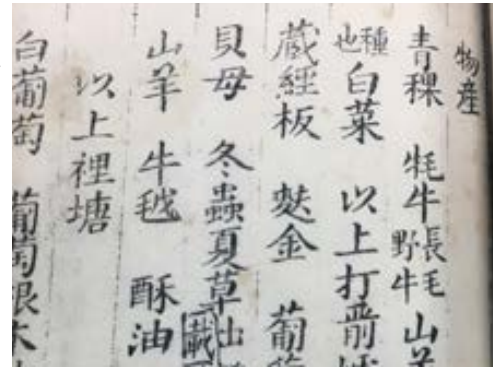 物産
青稞 牦牛長毛野牛 山羊
也種 白菜 以上打箭
蔵經板 麩金 葡
貝母 冬蟲夏草出
山羊 牛毧 酥油
以上裡塘
白葡萄 葡萄根木